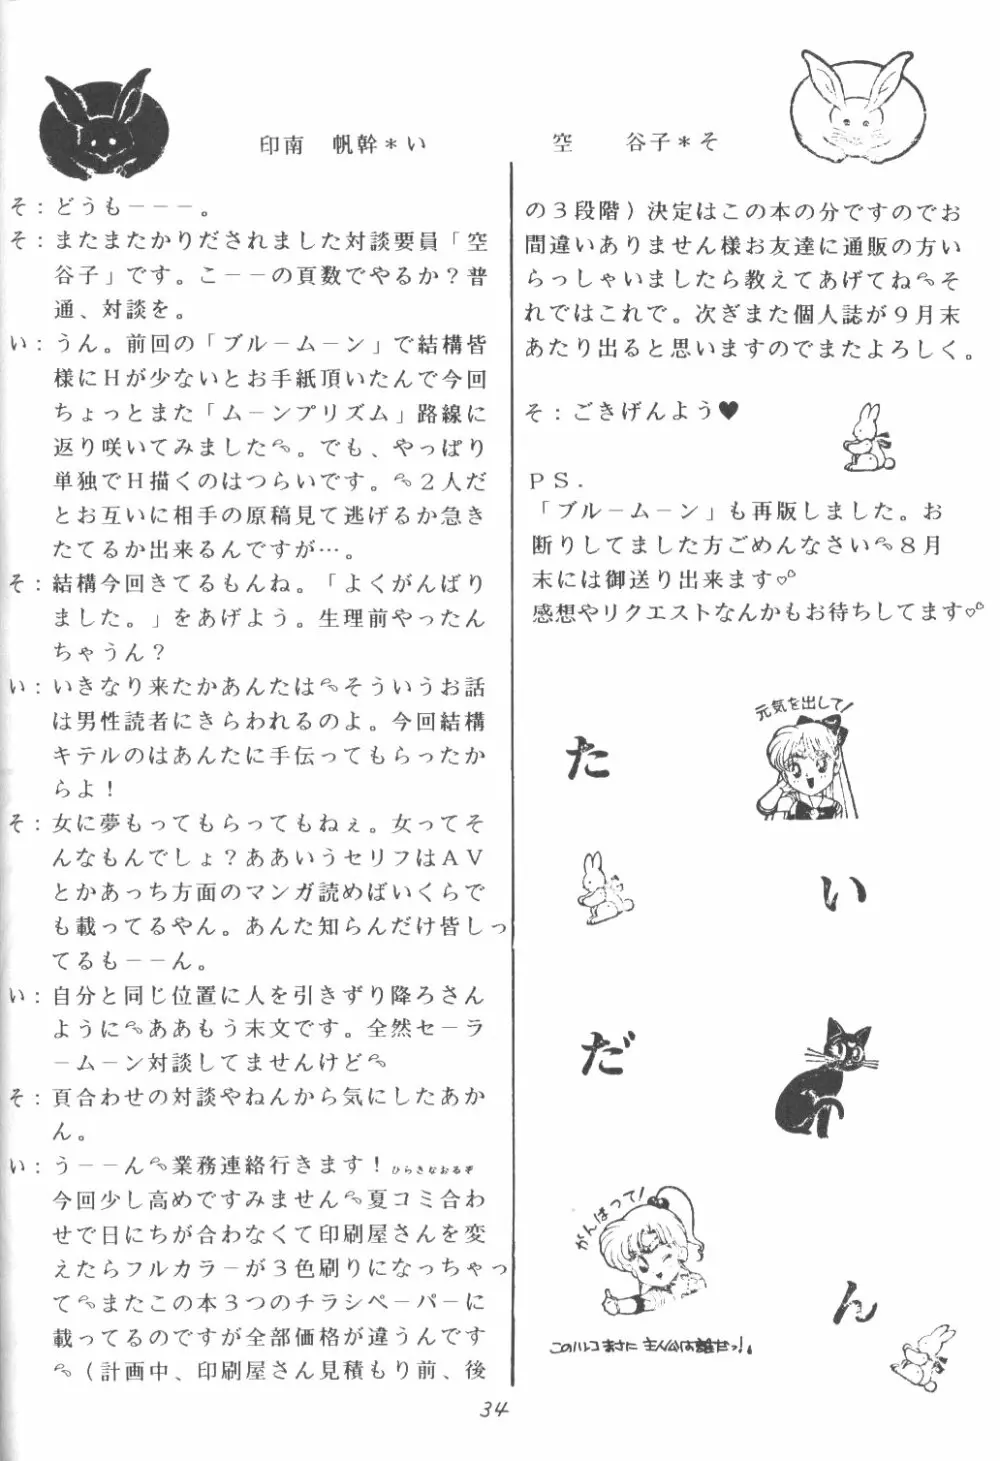 印南　帆幹＊い
空　谷子＊そ
そ：どうもーーー。
そ：またまたかりだされました対談要員「空
谷子」です。こーーの頁数でやるか？普
通、対談を。
い：うん。前回の「ブルームーン」で結構皆
様にＨが少ないとお手紙頂いたんで今回
ちょっとまた「ムーンプリズム」路線に
返り咲いてみました。でも、やっぱり
単独でＨ描くのはつらいです。２人だ
とお互いに相手の原稿見て逃げるか急き
たてるか出来るんですが…。
そ：結構今回きてるもんね。「よくがんばり
ました。」をあげよう。生理前やったん
ちゃうん？
い：いきなり来たかあんたはそういうお話
は男性読者にきらわれるのよ。今回結構
キテルのはあんたに手伝ってもらったか
らよ！
そ：女に夢もってもらってもねぇ。女ってそ
んなもんでしょ？ああいうセリフはＡＶ
とかあっち方面のマンガ読めばいくらで
も載ってるやん。あんた知らんだけ皆しっ
てるもーーん。
い：自分と同じ位置に人を引きずり降ろさん
ようにああもう末文です。全然セーラ
ームーン対談してませんけど
そ：頁合わせの対談やねんから気にしたあか
ん。
い：うーーん業務連絡行きます！ひらきなおるぞ
今回少し高めですみません夏コミ合わ
せで日にちが合わなくて印刷屋さんを変
えたらフルカラーが３色刷りになっちゃっ
てまたこの本３つのチラシペーパーに
載ってるのですが全部価格が違うんです
（計画中、印刷屋さん見積もり前、後
の３段階）決定はこの本の分ですのでお
間違いありません様お友達に通販の方い
らっしゃいましたら教えてあげてねそ
れではこれで。次ぎまた個人誌が９月末
あたり出ると思いますのでまたよろしく。
そ：ごきげんよう♥
ＰＳ．
「ブルームーン」も再版しました。お
断りしてました方ごめんなさい８月
末には御送り出来ます♡
感想やリクエストなんかもお待ちしてます♡
元気を出して！
た
い
だ
がんばって！
ん
34